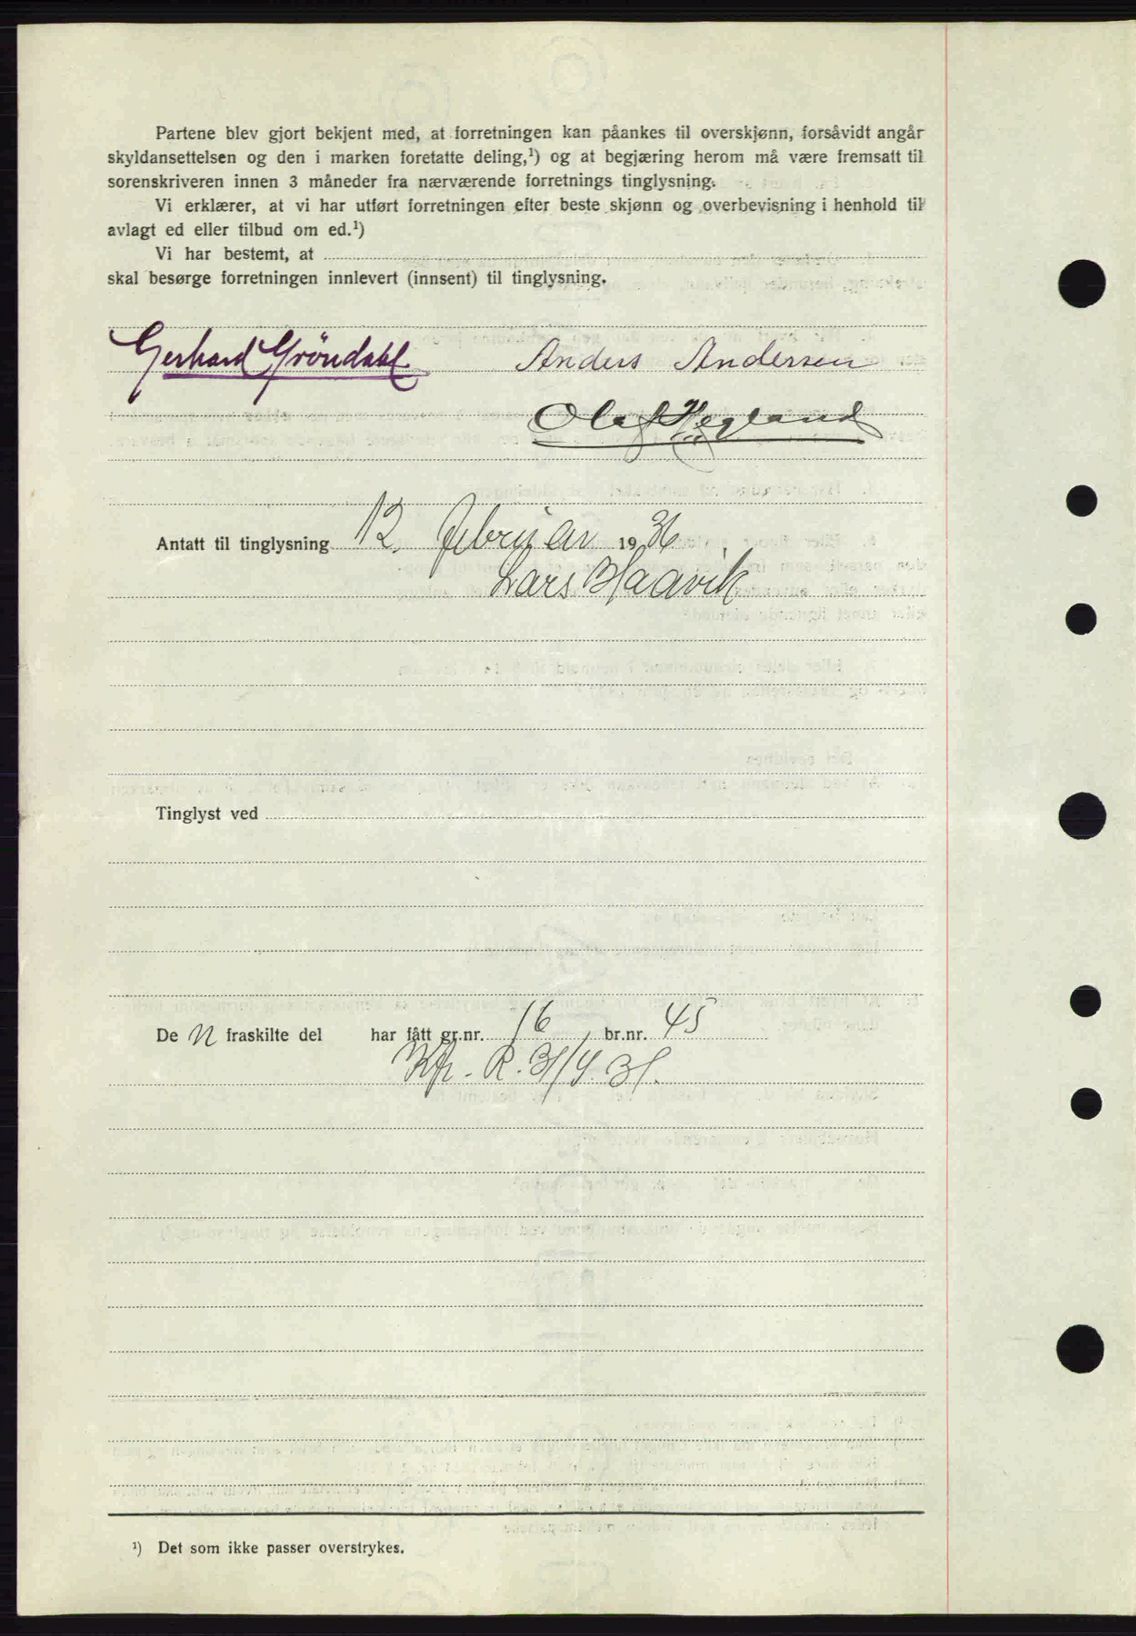 Partene blev gjort bekjent med, at forretningen kan påankes til overskjønn, forsåvidt angår
skyldansettelsen og den i marken foretatte deling,¹) og at begjæring herom må være fremsatt til
sorenskriveren innen 3 måneder fra nærværende forretnings tinglysning.
Vi erklærer, at vi har utført forretningen efter beste skjønn og overbevisning i henhold til
avlagt ed eller tilbud om ed.¹)
Vi har bestemt, at
skal besørge forretningen innlevert (innsent) til tinglysning.
Gerhard Gröndahl Anders Andersen
Olaf Hegland
Antatt til tinglysning 12. februar 1936.
Lars Haavik
Tinglyst ved
De n fraskilte del har fått gr.nr. 16, br.nr. 45
R.
¹) Det som ikke passer overstrykes.